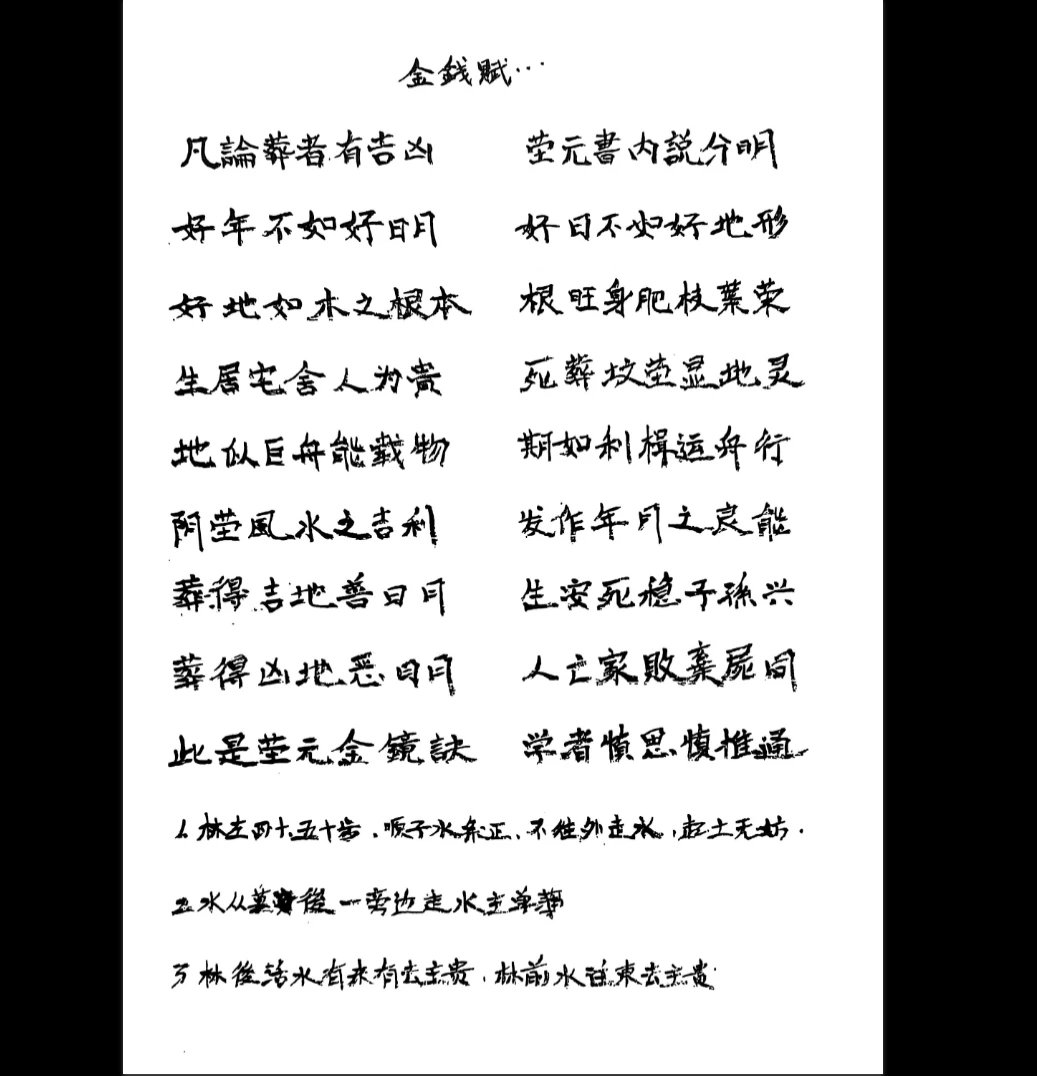 金錢賦…
凡論葬者有吉凶　茔元書内説分明
好年不如好日月　好日不如好地形
好地如木之根本　根旺身肥枝葉荣
生居宅舍人为貴　死葬坟茔显地灵
地似巨舟能载物　期如利楫运舟行
阴茔風水之吉利　发作年月之良能
葬得吉地善日月　生安死稳子孫兴
葬得凶地恶日月　人亡家敗棄屍同
此是茔元金鏡訣　学者慎思慎惟通
1. 林左四十五十步，順子水条正、不往外走水，起土无妨．
2. 水从墓後一旁边走水主
3 林後活水有来有去主贵，林前水往東去主貴